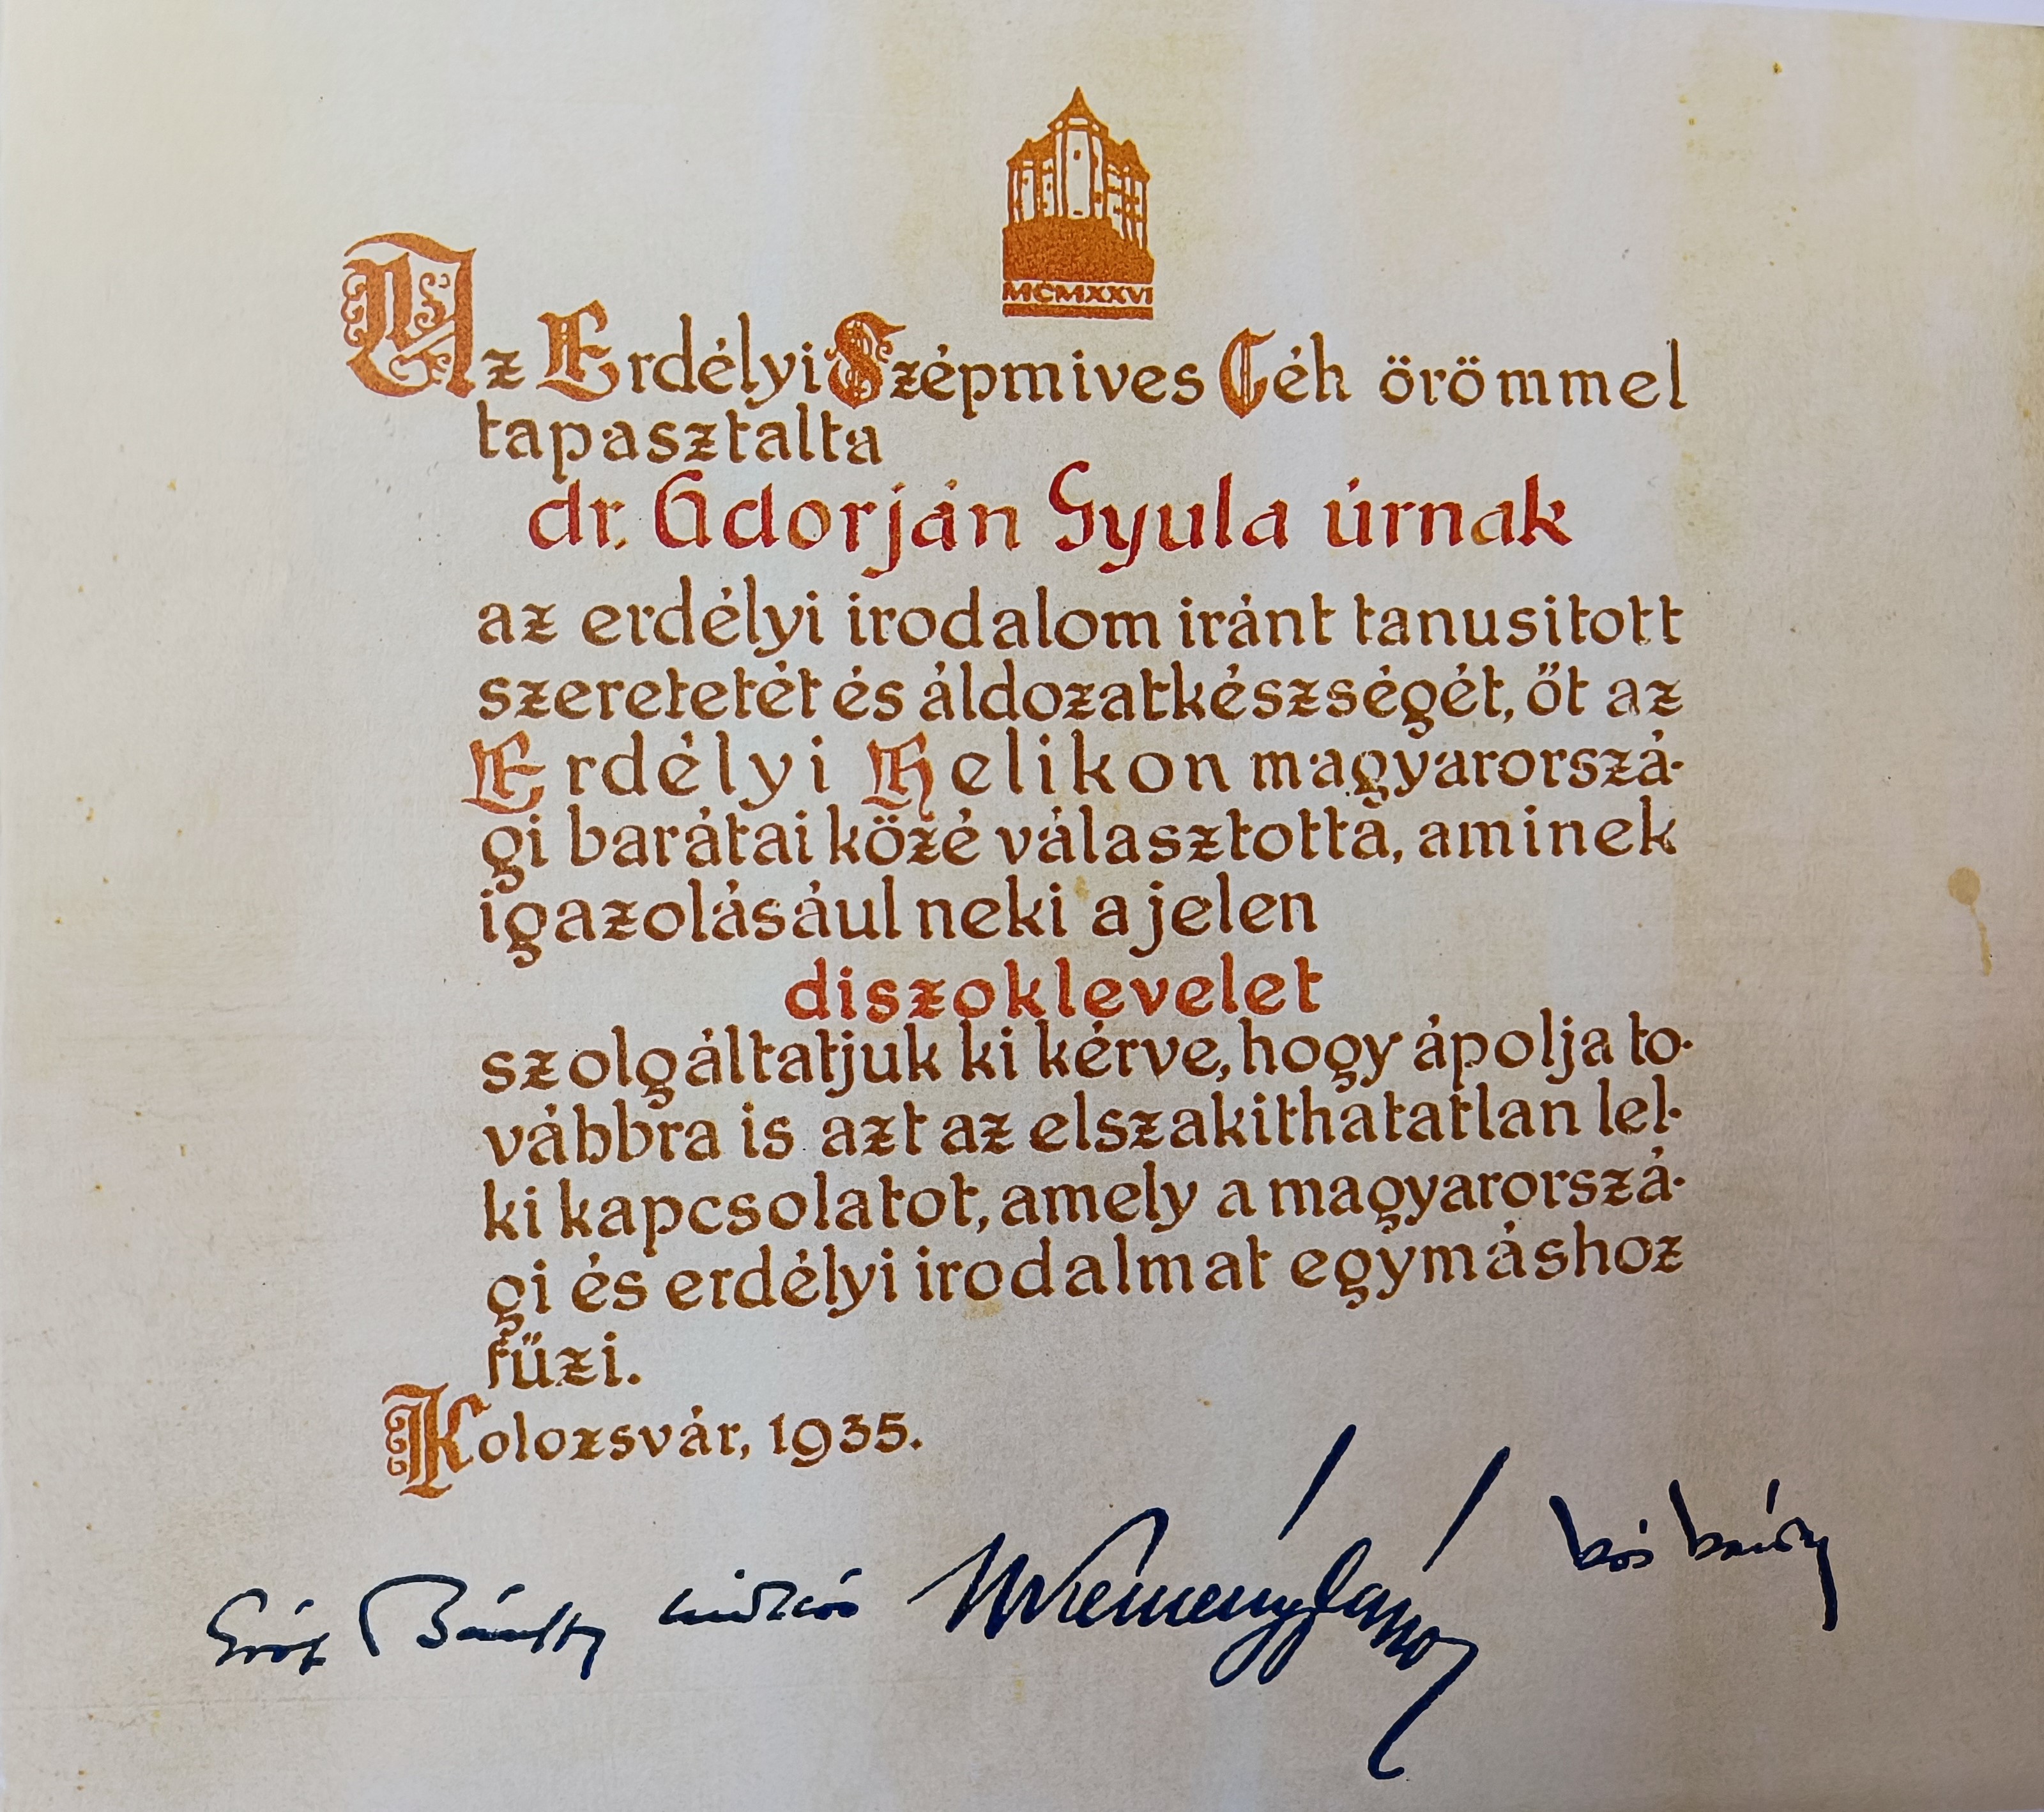 MCMXXVI
Az Erdélyi Szépmives Céh örömmel
tapasztalta
dr. Adorján Gyula úrnak
az erdélyi irodalom iránt tanusitott
szeretetét és áldozatkészségét, őt az
Erdélyi Helikon magyarorszá-
gi barátai közé választotta, aminek
igazolásául neki a jelen
diszoklevelet
szolgáltatjuk ki kérve, hogy ápolja to-
vábbra is azt az elszakithatatlan lel-
ki kapcsolatot, amely a magyarorszá-
gi és erdélyi irodalmat egymáshoz
fűzi.
Kolozsvár, 1935.
Gróf Bánffy Miklós Kemény János Kós Károly